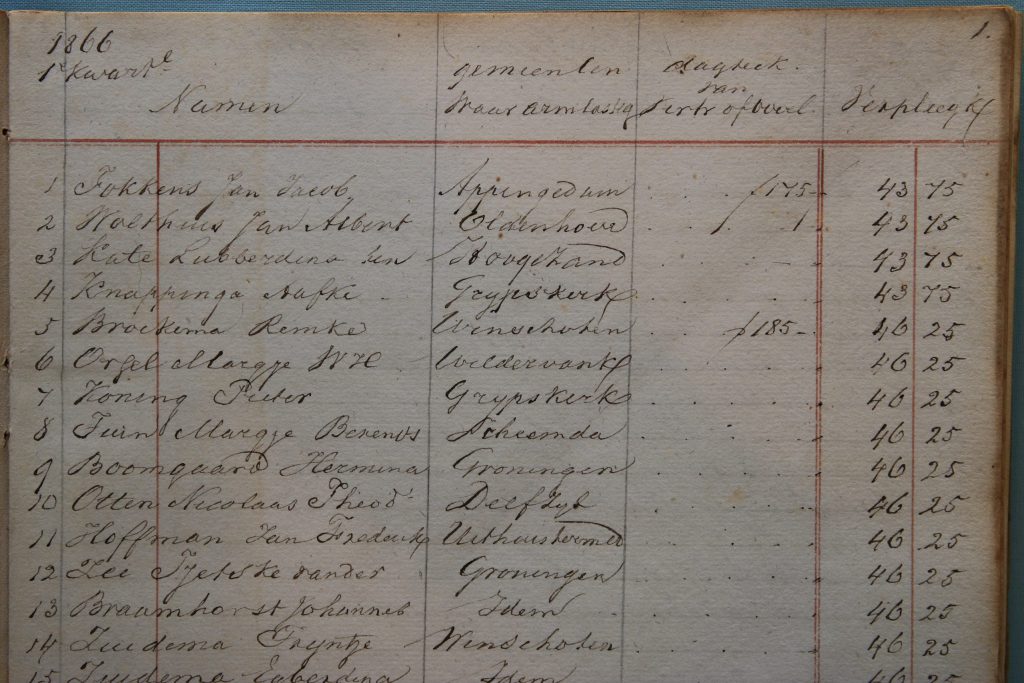 1866 1.
1e Kwartl. gemeenten dagteek.
van
Namen Waar armlastig Vertr of overl. Verpleegk
1 Fokkens Jan Jacob Appingedam f175 - 43 75
2 Wolthuis Jan Albert Oldenhove 43 75
3 Kate Lubberdina ten Hoogezand 43 75
4 Knappinga Aafke Grypskerk 43 75
5 Broekema Remke Winschoten f185 - 46 25
6 Orgel Margje WH Wildervank 46 25
7 Koning Pieter Grypskerk 46 25
8 Tuin Margje Berends Scheemda 46 25
9 Boomgaard Hermina Groningen 46 25
10 Otten Nicolaas Theod. Delfzyl 46 25
11 Hoffman Jan Frederik Uithuistermed 46 25
12 Zee Tjetske van der Groningen 46 25
13 Braamhorst Johannes Idem 46 25
14 Zuidema Tryntje Winschoten 46 25
15 Zuidema Egberdina Idem 46 25